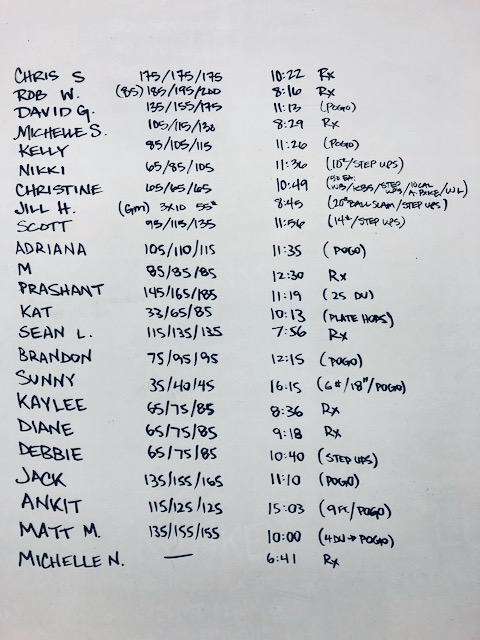 CHRIS S 175/175/175 10:22 Rx
ROB W. (85) 185/195/200 8:16 Rx
DAVID G. 135/155/175 11:13 (POGO)
MICHELLE S. 105/115/130 8:29 Rx
KELLY 85/105/115 11:26 (POGO)
NIKKI 65/85/105 11:36 (10#/STEP UPS)
CHRISTINE 65/65/65 10:49 (30 EA. WB/KBS/STEP UPS/10CAL A.BIKE/WL)
JILL H. (6m) 3x10 55# 8:45 (20# BALL SLAM/STEP UPS)
SCOTT 95/115/135 11:56 (14#/STEP UPS)
ADRIANA 105/110/115 11:35 (POGO)
M 85/85/85 12:30 Rx
PRASHANT 145/165/185 11:19 (25 DU)
KAT 33/65/85 10:13 (PLATE HOPS)
SEAN L. 115/135/135 7:56 Rx
BRANDON 75/95/95 12:15 (POGO)
SUNNY 35/40/45 16:15 (6#/18"/POGO)
KAYLEE 65/75/85 8:36 Rx
DIANE 65/75/85 9:18 Rx
DEBBIE 65/75/85 10:40 (STEP UPS)
JACK 135/155/165 11:10 (POGO)
ANKIT 115/125/125 15:03 (9FT/POGO)
MATT M. 135/155/155 10:00 (4DU→POGO)
MICHELLE N. — 6:41 Rx